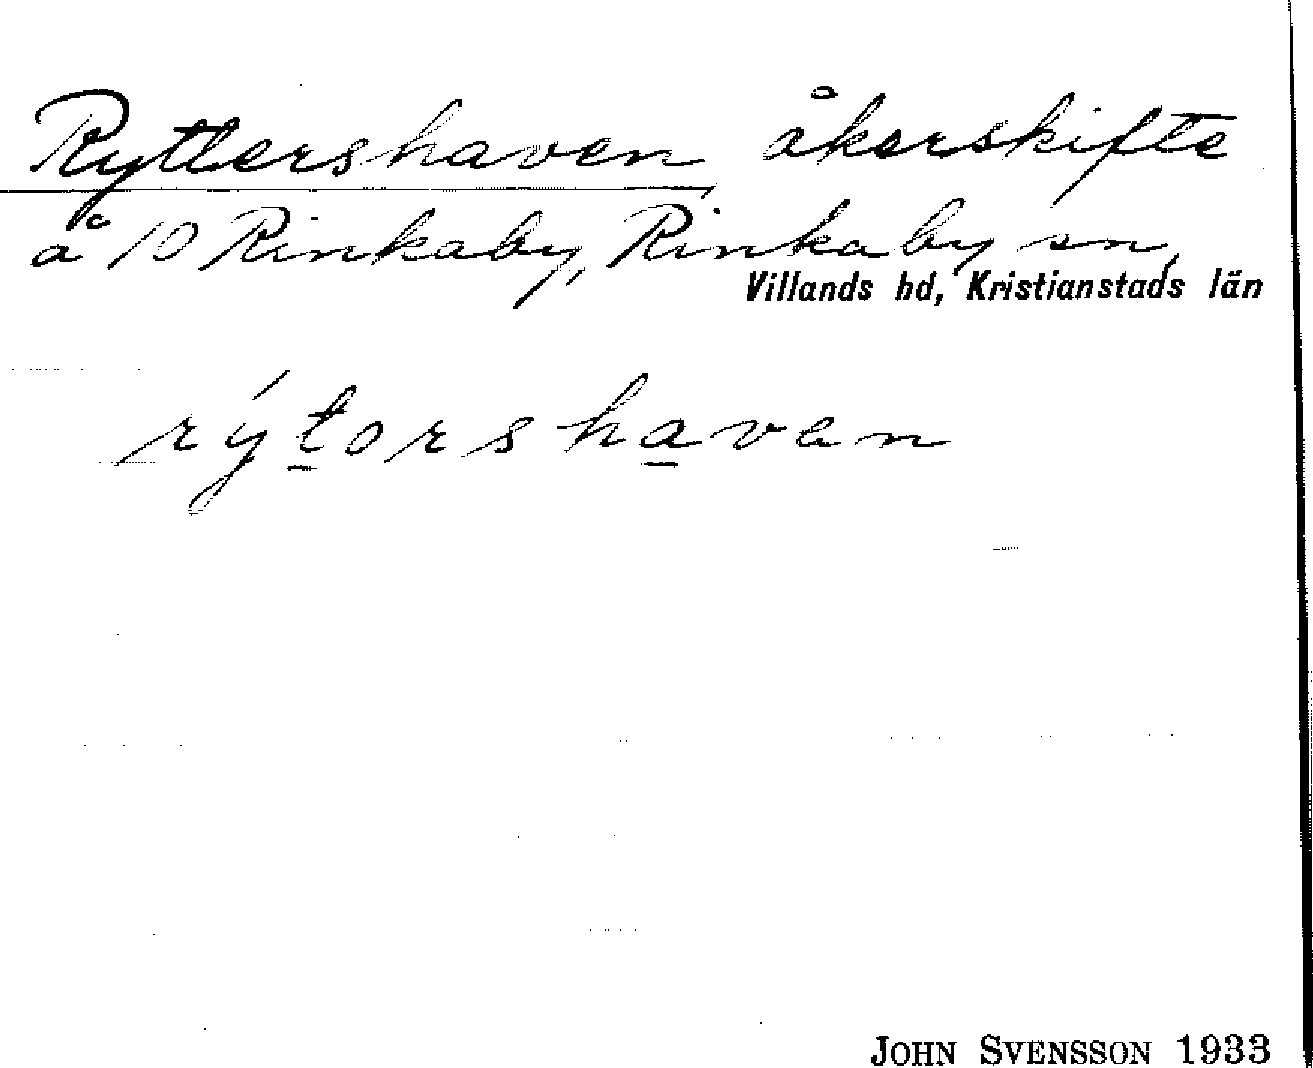 Ryttershaven åkerskifte
å 10 Rinkaby, Rinkaby sn,
Villands hd, Kristianstads län
rýtorshaven
JOHN SVENSSON 1933